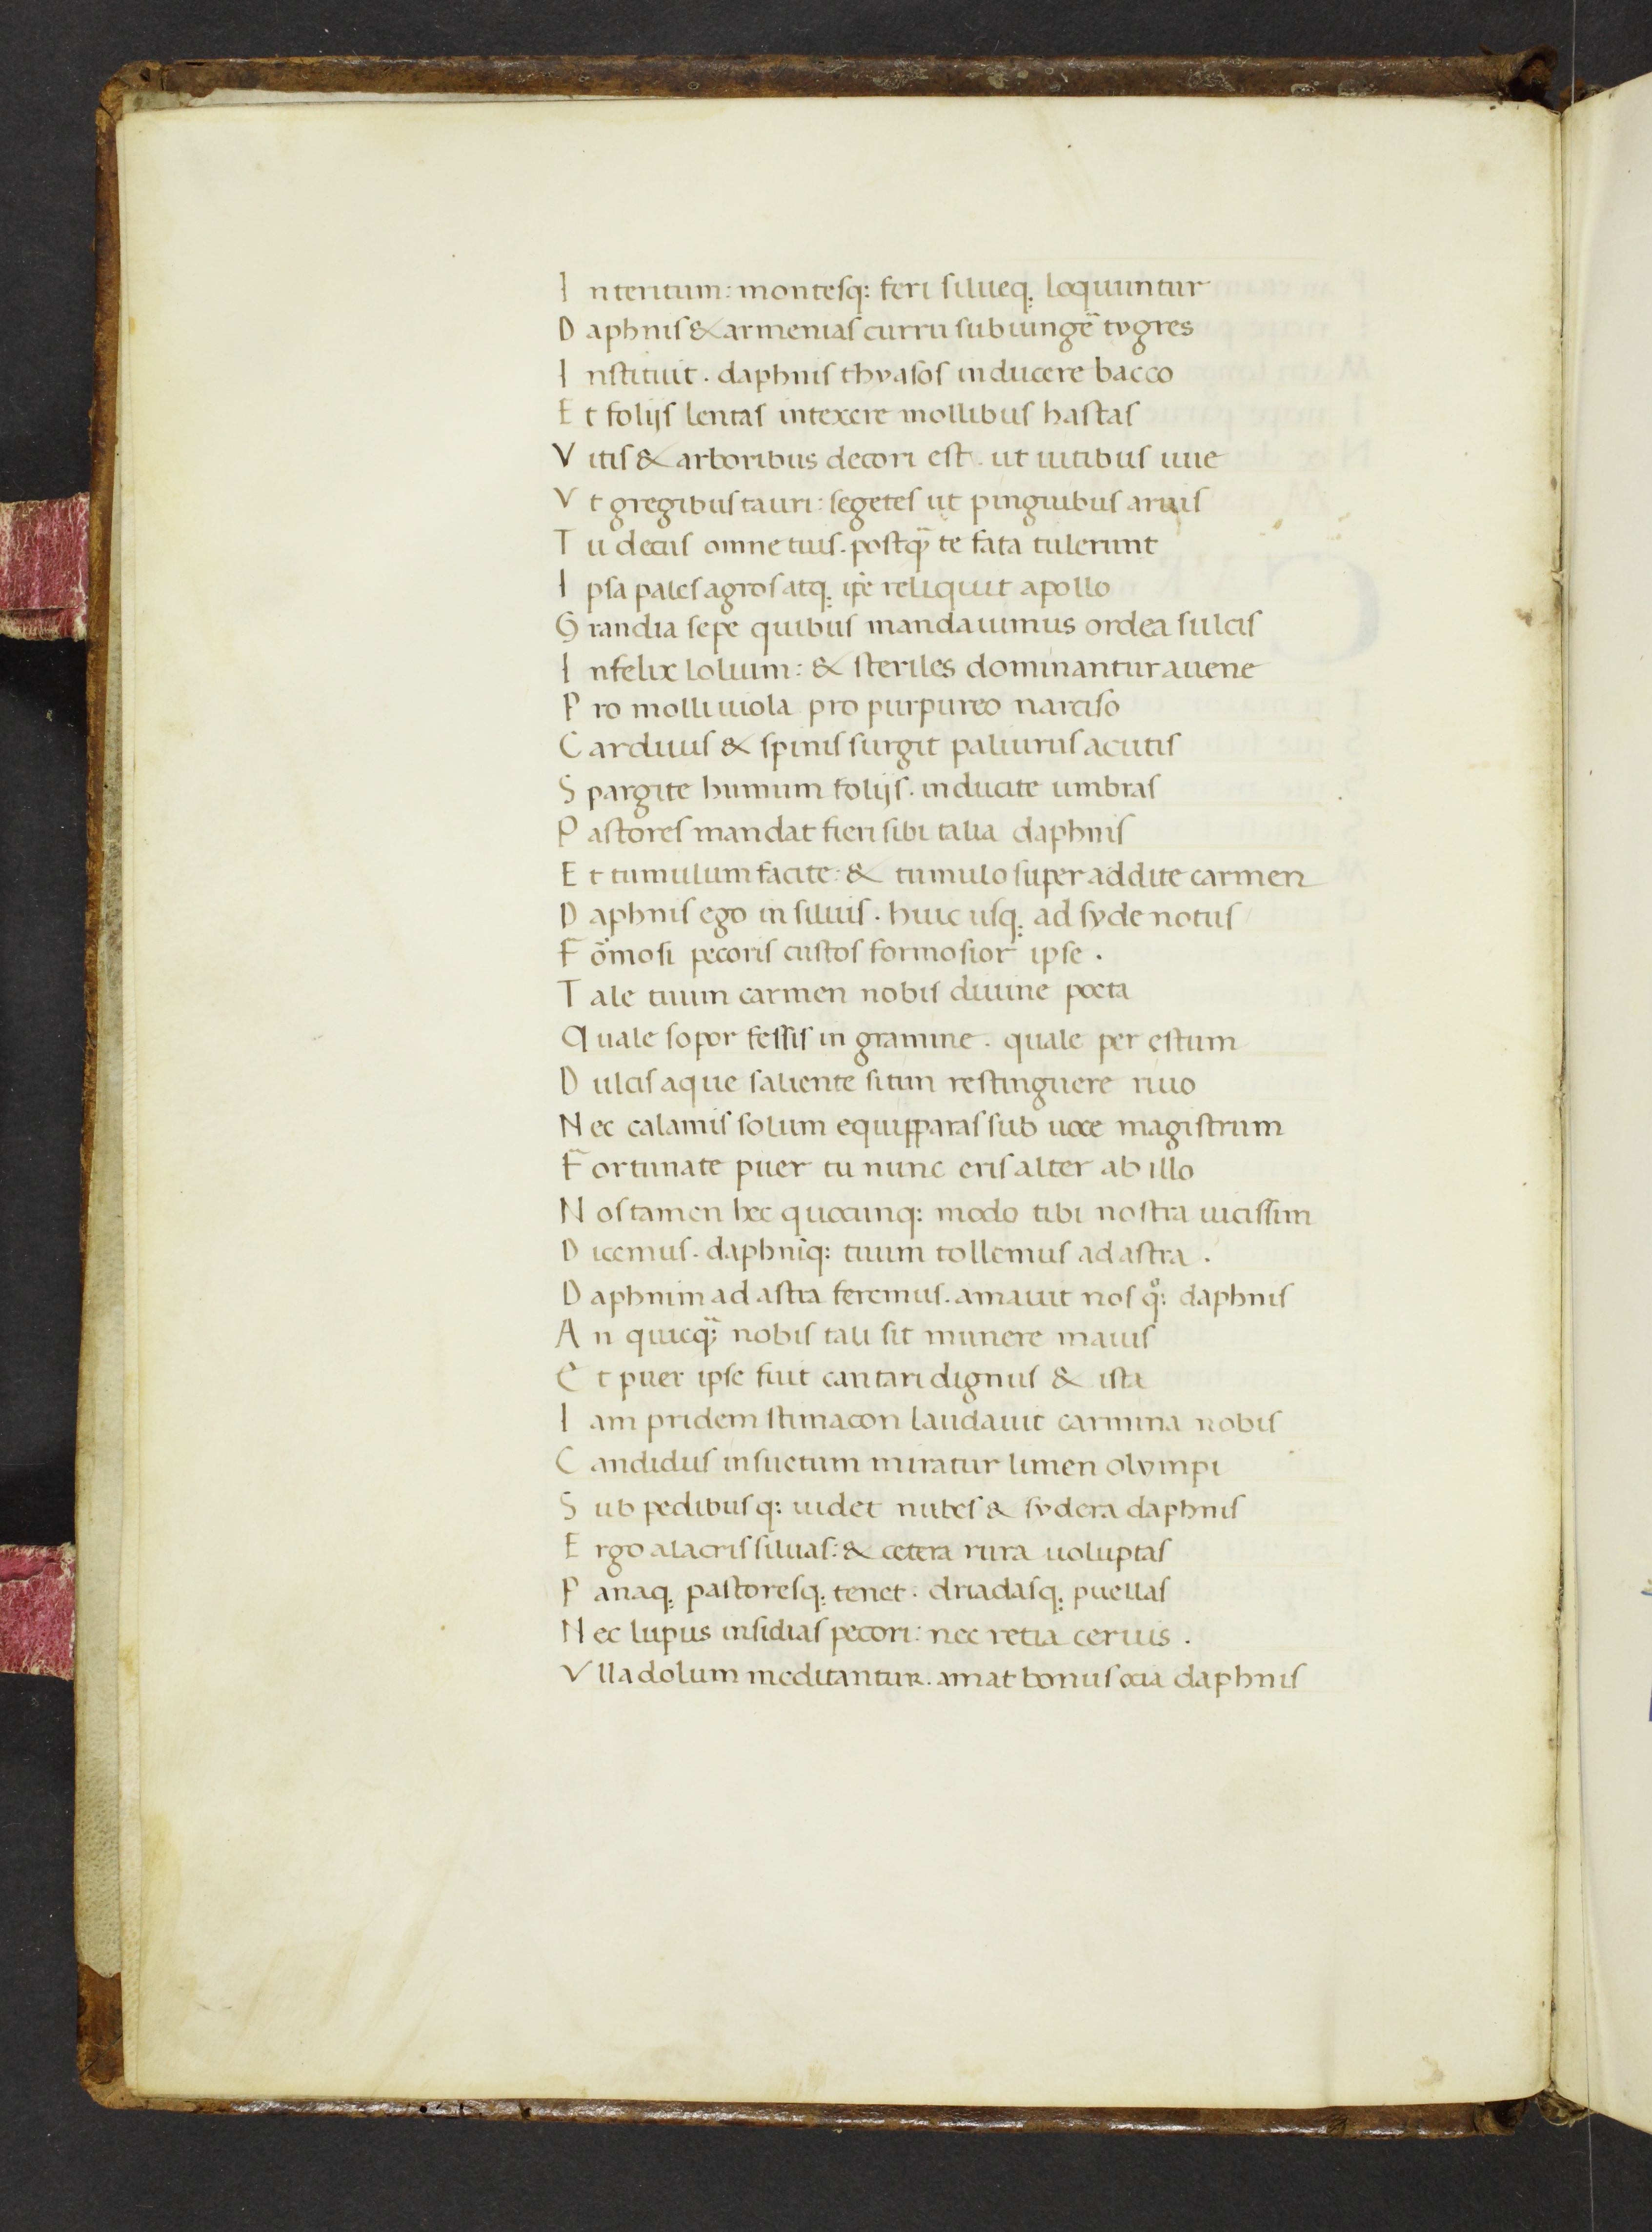 Interitum: montesq: feri silueq. loquuntur
Daphnis & armenias curru subiungē tygres
Instituit. daphnis thyasos inducere bacco
Et folijs lentas intexere mollibus hastas
Vitis & arboribus decori est. ut uitibus uue
Vt gregibus tauri: segetes ut pinguibus aruis
Tu decus omne tuis. postq̃ te fata tulerunt
Ipsa pales agros atq; ip̄e reliquit apollo
Grandia sepe quibus mandauimus ordea sulcis
Infelix lolium: & steriles dominantur auene
Pro molli uiola pro purpureo narciso
Carduus & spinis surgit paliurus acutis
Spargite humum folijs. inducite umbras
Pastores mandat fieri sibi talia daphnis
Et tumulum facite: & tumulo super addite carmen
Daphnis ego in siluis. huic usq; ad syde notus
Fōmosi pecoris custos formosior ipse.
Tale tuum carmen nobis diuine poeta
Quale sopor fessis in gramine. quale per ęstum
Dulcis aque saliente sitim restinguere riuo
Nec calamis solum equipparas sub uoce magistrum
Fortunate puer tu nunc eris alter ab illo
Nos tamen hec quocunq: modo tibi nostra uicissim
Dicemus. daphniq: tuum tollemus ad astra.
Daphnim ad astra feremus. amauit nos qͦ: daphnis
An quicq̃; nobis tali sit munere maius
Et puer ipse fuit cantari dignus & ista
Iam pridem stimacon laudauit carmina nobis
Candidus insuetum miratur limen olympi
Sub pedibusq: uidet nubes & sydera daphnis
Ergo alacris siluas: & cetera rura uoluptas
Panaq; pastoresq; tenet. driadasq; puellas
Nec lupus insidias pecori: nec retia ceruis.
Vlla dolum meditantur. amat bonus ocia daphnis